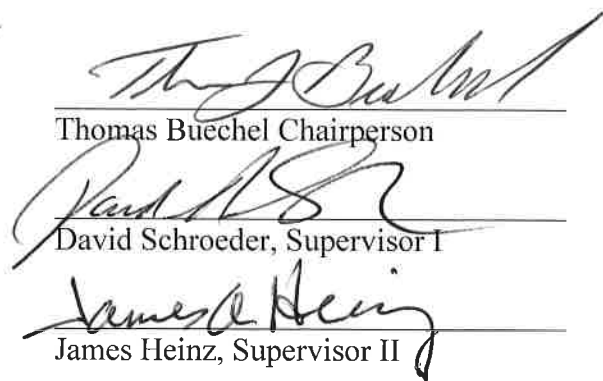 Thos J Buechel
Thomas Buechel Chairperson
David Schroeder, Supervisor I
James A Heinz
James Heinz, Supervisor II